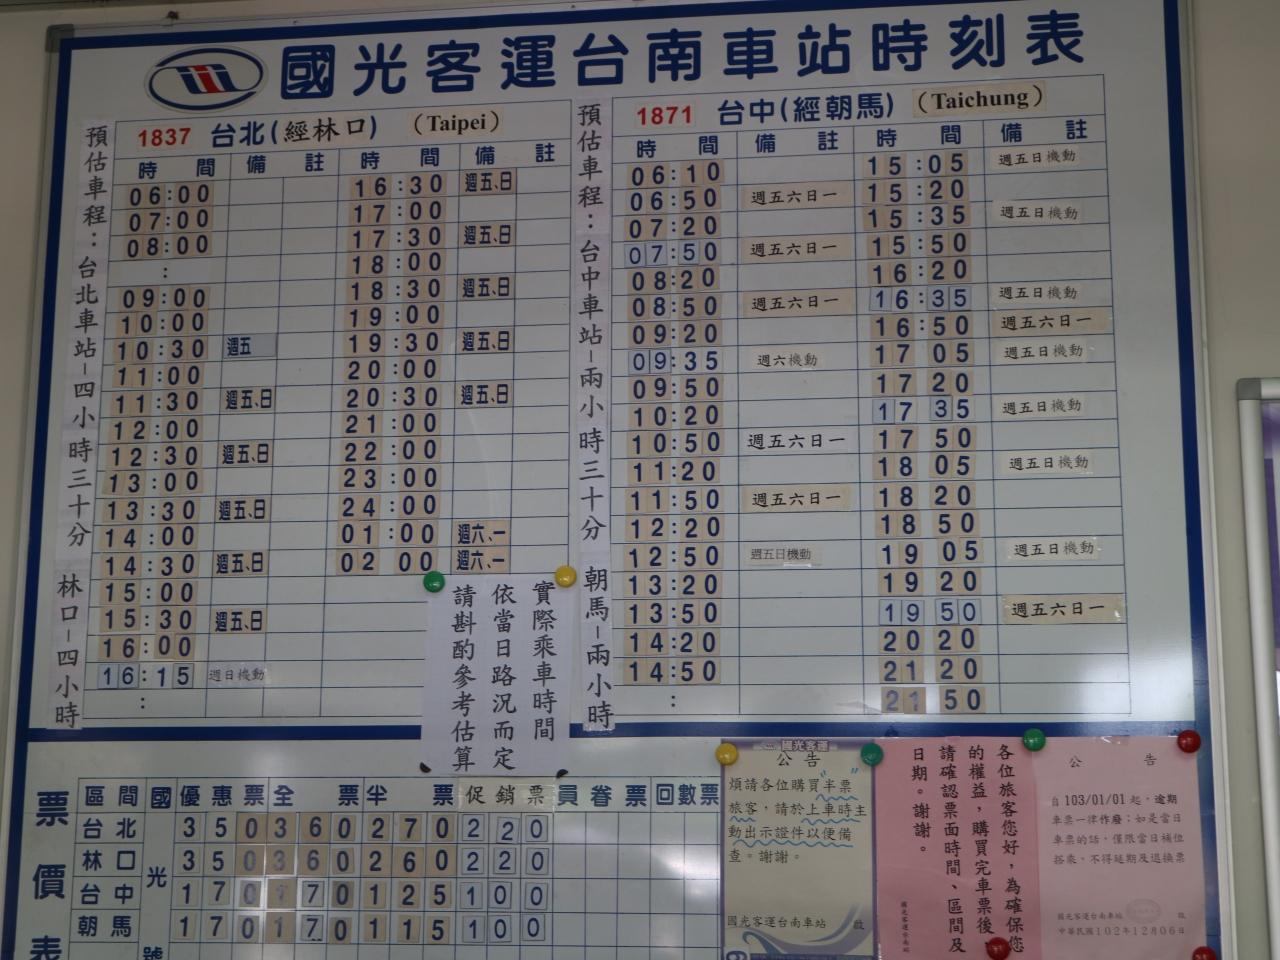 國光客運台南車站時刻表
預估車程：台北車站－四小時三十分 林口－四小時
1837 台北(經林口) (Taipei)
時間 備註 時間 備註
06:00
07:00
08:00
:
09:00
10:00
10:30 週五
11:00
11:30 週五、日
12:00
12:30 週五、日
13:00
13:30 週五、日
14:00
14:30 週五、日
15:00
15:30 週五、日
16:00
16:15 週日機動
:
16:30 週五、日
17:00
17:30 週五、日
18:00
18:30 週五、日
19:00
19:30 週五、日
20:00
20:30 週五、日
21:00
22:00
23:00
24:00
01:00 週六、一
02 00 週六、一
實際乘車時間
依當日路況而定
請斟酌參考估算
預估車程：台中車站－兩小時三十分 朝馬－兩小時
1871 台中(經朝馬) (Taichung)
時間 備註 時間 備註
06:10
06:50 週五六日一
07:20
07:50 週五六日一
08:20
08:50 週五六日一
09:20
09:35 週六機動
09:50
10:20
10:50 週五六日一
11:20
11:50 週五六日一
12:20
12:50 週五日機動
13:20
13:50
14:20
14:50
:
15:05 週五日機動
15:20
15:35 週五日機動
15:50
16:20
16:35 週五日機動
16:50 週五六日一
17 05 週五日機動
17 20
17 35 週五日機動
17 50
18 05 週五日機動
18 20
18 50
19 05 週五日機動
19 20
19 50 週五六日一
20 20
21 20
21 50
票價表
區間 國光號 優惠票 全票 半票 促銷票 員眷票 回數票
台北 350 360 270 220
林口 350 360 260 220
台中 170 170 125 100
朝馬 170 170 115 100
國光客運
公告
煩請各位購買"半票"
旅客，請於上車時主
動出示證件以便備
查。謝謝。
國光客運台南車站 啟
各位旅客您好，為確保您
的權益，購買完車票後，
請確認票面時間、區間及
日期。謝謝。
國光客運台南站
公告
自103/01/01起，逾期
車票一律作廢；如是當日
車票的話，僅限當日補位
搭乘，不得延期及退換票
國光客運台南車站 啟
中華民國102年12月06日